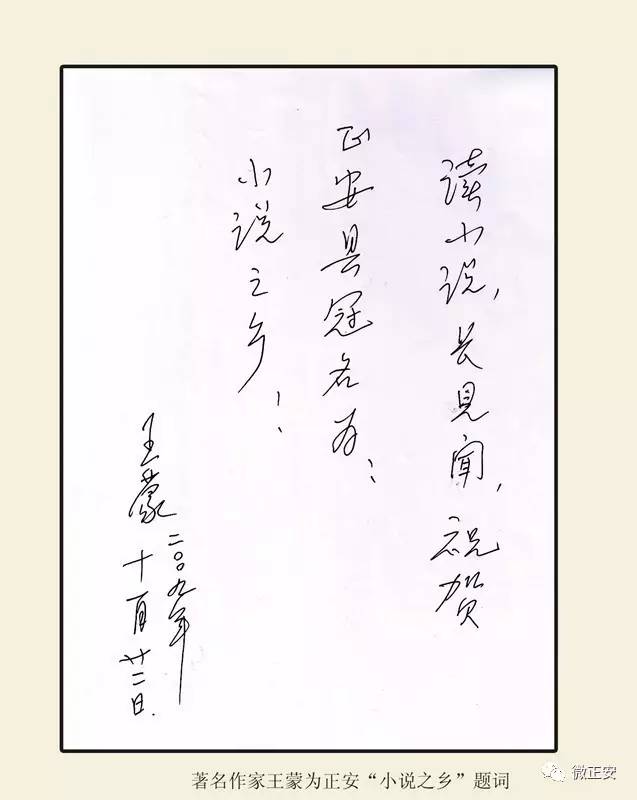 读小说，长见闻，祝贺
正安县冠名为：
小说之乡！
王蒙
二〇〇九年
十一月廿二日.
著名作家王蒙为正安“小说之乡”题词
微正安